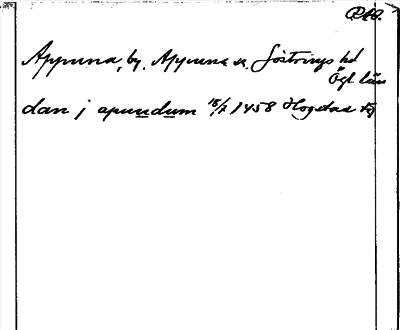 RAP.
Appuna, by, Appuna sn. Göstrings hd
Ögl. län
dan j apundum 18/7 1458 Hogstad tg